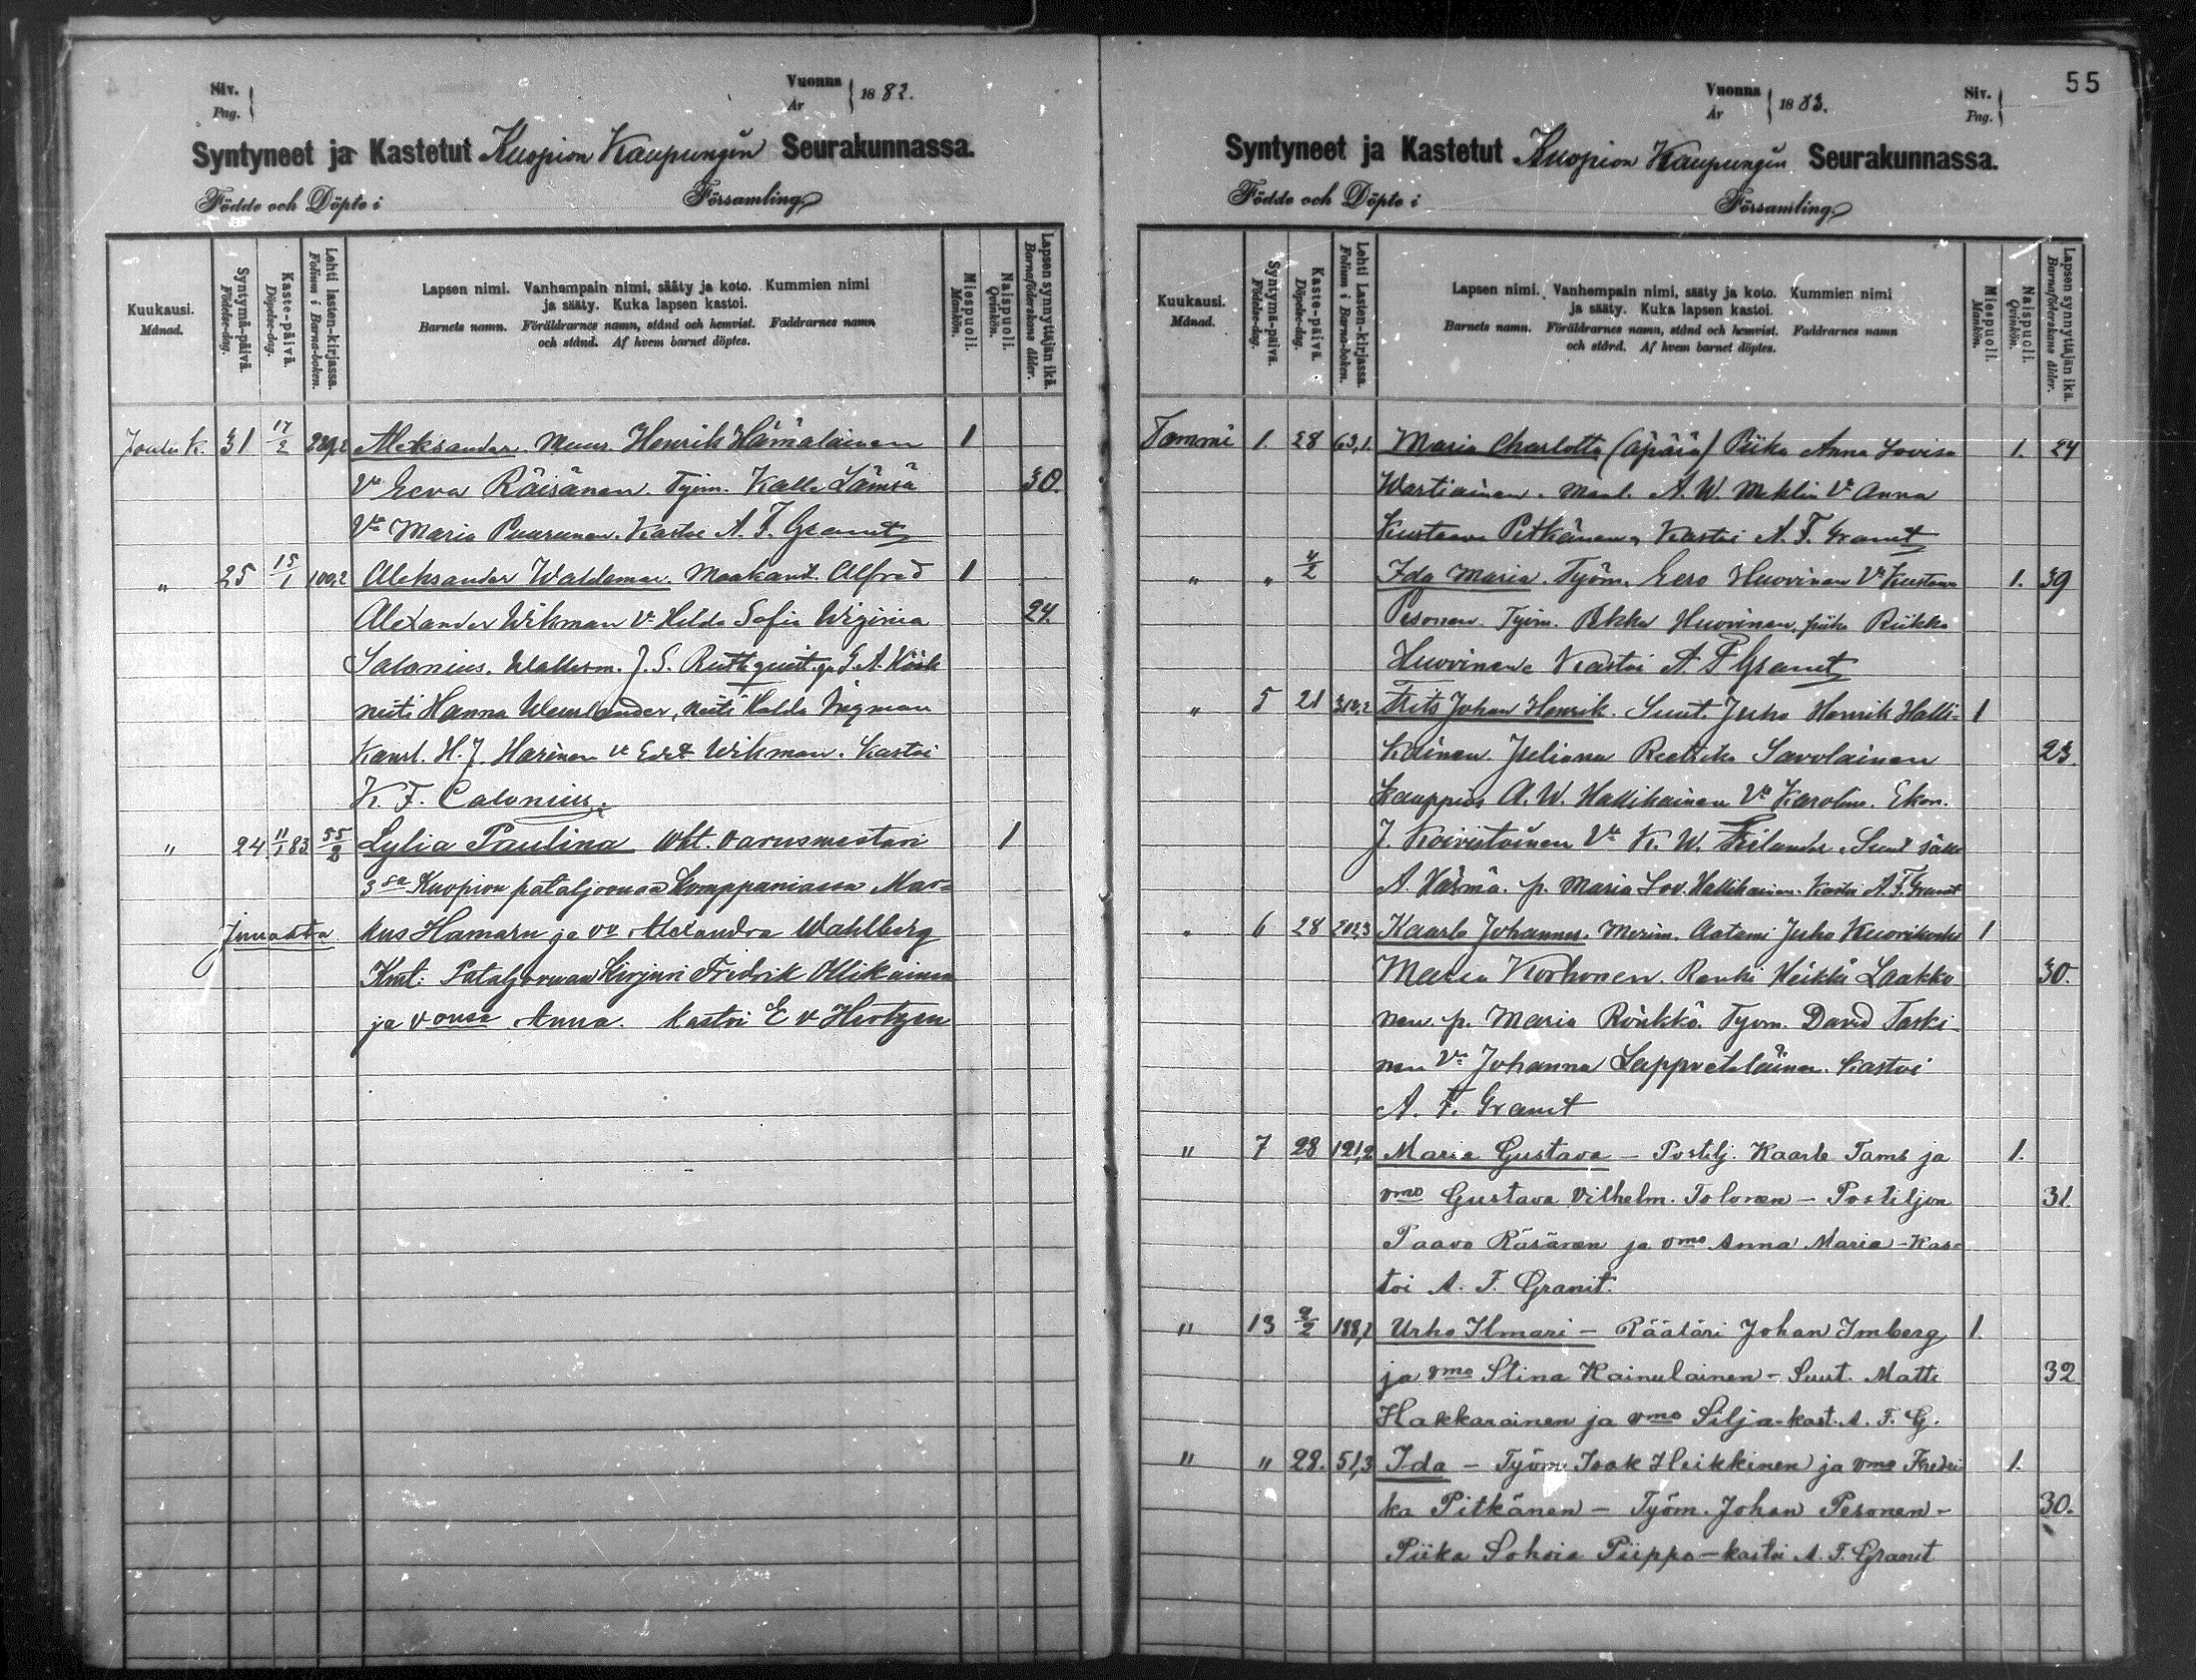 Siv.
Pag.
Vuonna
År
1882.
Syntyneet ja Kastetut Kuopion Kaupungin Seurakunnassa.
Födde och Döpte i Församling
Kuukausi.
Månad.
Syntymä-päivä.
Födelse-dag.
Kaste-päivä.
Döpelse-dag.
Lehti lasten-kirjassa.
Folium i Barna-boken.
Lapsen nimi. Vanhempain nimi, sääty ja koto. Kummien nimi
ja sääty. Kuka lapsen kastoi.
Barnets namn. Föräldrarnes namn, stånd och hemvist. Faddrarnes namn
och stånd. Af hvem barnet döptes.
Miespuoli.
Mankön.
Naispuoli.
Qvinkön.
Lapsen synnyttäjän ikä.
Barnaföderskans ålder.
Joulu K. 31 17/2 Aleksander. Muur. Henrik Hämäläinen 1
Vo Eeva Räisänen. Työm. Kalle Lämsä 30.
Vo Maria Puurunen. Kastoi A. F. Granit
" 25 15/1 100,2 Aleksander Waldemar. Maakant. Alfred 1
Alexander Wikman Vo Hilda Sofia Wirginia 24.
Salonius. J. S.
neiti Hanna neiti Hilda
H. J. Harinen Wikman. Kastoi
K. F. Calonius.
" 24 11/1 83. 55/2 Lylia Paulina Wkt. varusmestari 1
3sa Kuopion pataljoonaa Komppaniassa Mar=
kus Hamaru ja vo Alexandra Wahlberg
Kmt: Pataljoonan Kirjuri Fredrik Ollikainen
ja vonsa Anna. Kastoi E v Hertzen
55
Vuonna
År
1883.
Siv.
Pag.
Syntyneet ja Kastetut Kuopion Kaupungin Seurakunnassa.
Födde och Döpte i Församling
Kuukausi.
Månad.
Syntymä-päivä.
Födelse-dag.
Kaste-päivä.
Döpelse-dag.
Lehti Lasten-kirjassa.
Folium i Barna-boken.
Lapsen nimi. Vanhempain nimi, sääty ja koto. Kummien nimi
ja sääty. Kuka lapsen kastoi.
Barnets namn. Föräldrarnes namn, stånd och hemvist. Faddrarnes namn
och stånd. Af hvem barnet döptes.
Miespuoli.
Mankön.
Naispuoli.
Qvinkön.
Lapsen synnyttäjän ikä.
Barnaföderskans ålder.
Tammi 1. 28 63,1. Maria Charlotta (äpärä) Piika Anna Lovisa 1. 24
Wartiainen. A. W. Meklin Vo Anna
Kustaava Pitkänen, Kastoi A. F. Granit
" " 4/2 Ida Maria. Työm. Eero Huovinen Vo Kustava 1. 39
Pesonen. Työm. Pekka Huovinen, piika Riikka
Huovinen. Kastoi A. F Granit
" 5 21 Frits Johan Henrik. Suut. Juho Henrik Halli- 1
kainen. Juliana Savolainen 23.
Kauppias A. W. Hallikainen Vo Karolina. Ekon.
J. Koivistoinen Vo K. W. Suut
A. Härmä. p. Maria Lov. Hallikainen. Kastoi A. F. Granit
" 6 28 202,3 Kaarlo Johannes. Merim. Aatami Juho 1
Maria Korhonen. Renki Heikki Laakko- 30.
nen. p. Maria Rönkkö. Työm. David Taski-
nen Vo Johanna Lappveteläinen. Kastoi
A. F. Granit
" 7 28 121,2 Maria Gustava – Postilj. Kaarle Tams ja 1.
vmo Gustava Vilhelm. Tolonen – Postiljon 31.
Paavo Räsänen ja vmo Anna Maria – Kas=
toi A. F. Granit.
" 13 9/2 188,2 Urho Ilmari – Räätäri Johan Imberg 1.
ja vmo Stina Kainulainen – Suut. Matti 32
Hakkarainen ja vmo Silja – kast. A. F. G.
" " 28. 51,3 Ida – Työm. Isak Heikkinen ja vmo Fredri 1.
ka Pitkänen – Työm. Johan Pesonen – 30.
Piika Sohvia Piippo – kastoi A. F. Granit